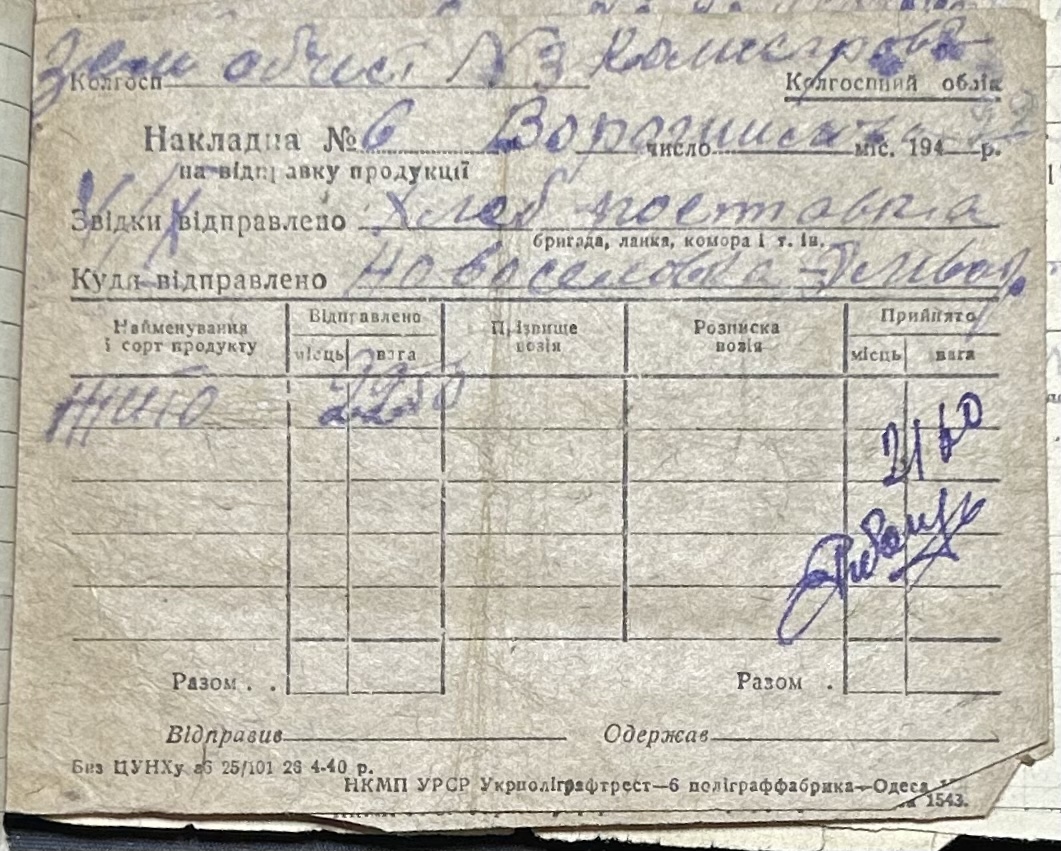 Зем общест N 3 Комисарово
Колгосп Колгоспний облік
Накладна № 6 число міс. 194 р.
на відправку продукції
Звідки відправлено Хлеб поставка
бригада, ланка, комора і т. ін.
Куди відправлено Новоселовка
Найменування і сорт продукту Відправлено Прізвище возія Розписка возія Прийнято
місць вага місць вага
Жито 2250 2160
Разом . . Разом .
Відправив Одержав
Биз ЦУНХу аб 25/101 26 4-40 р.
НКМП УРСР Укрполіграфтрест—6 поліграффабрика—Одеса
1543.